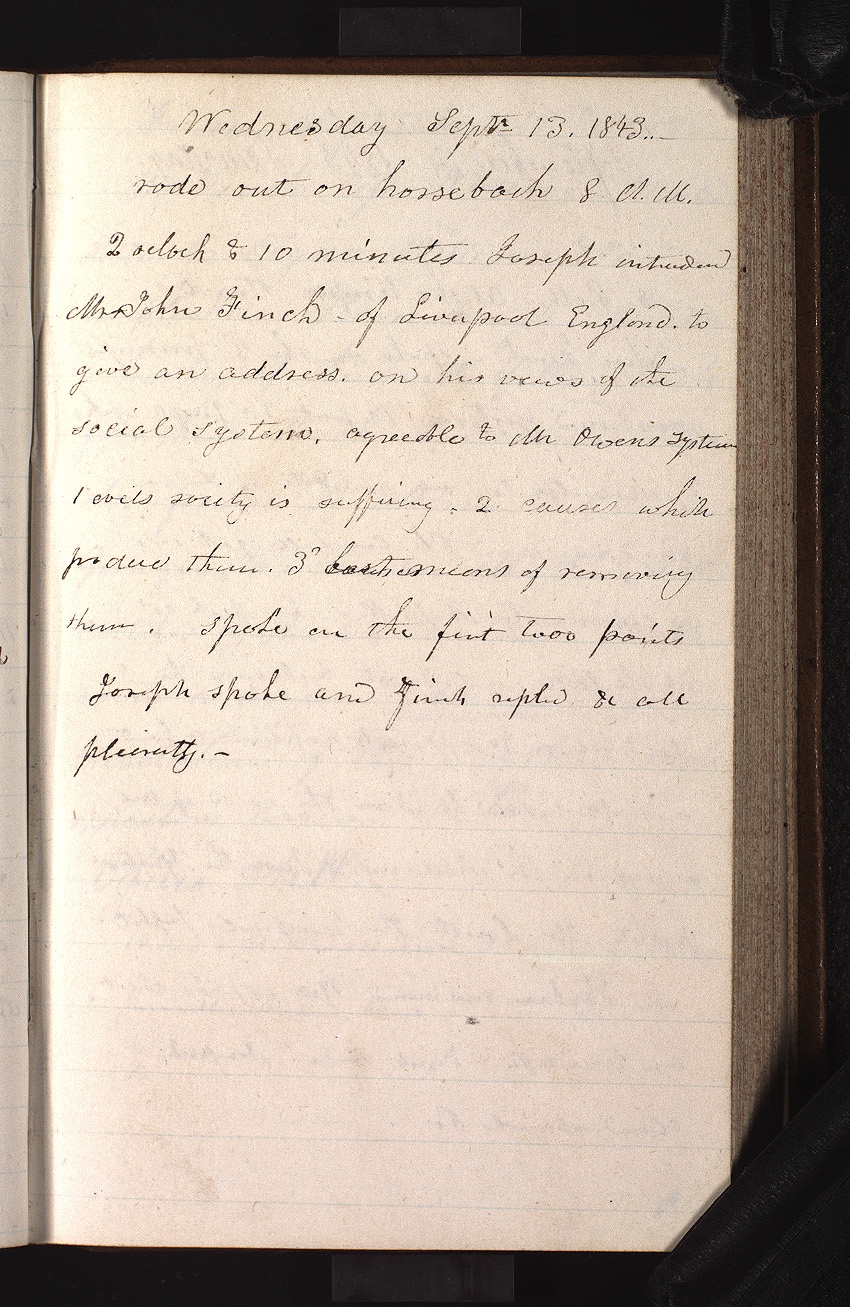 Wednesday Septr 13. 1843.—
rode out on horseback 8 A.M.
2 oclock & 10 minutes Joseph introduced
Mr John Finch - of Liverpool England. to
give an address. on his veiws of the
social system, agreeable to Mr Owens System
1 evils society is suffering. 2 causes which
produce them. 3d means of removing
them. spoke on the first two points
Joseph spoke and Finch replid & all
pleasantly.—